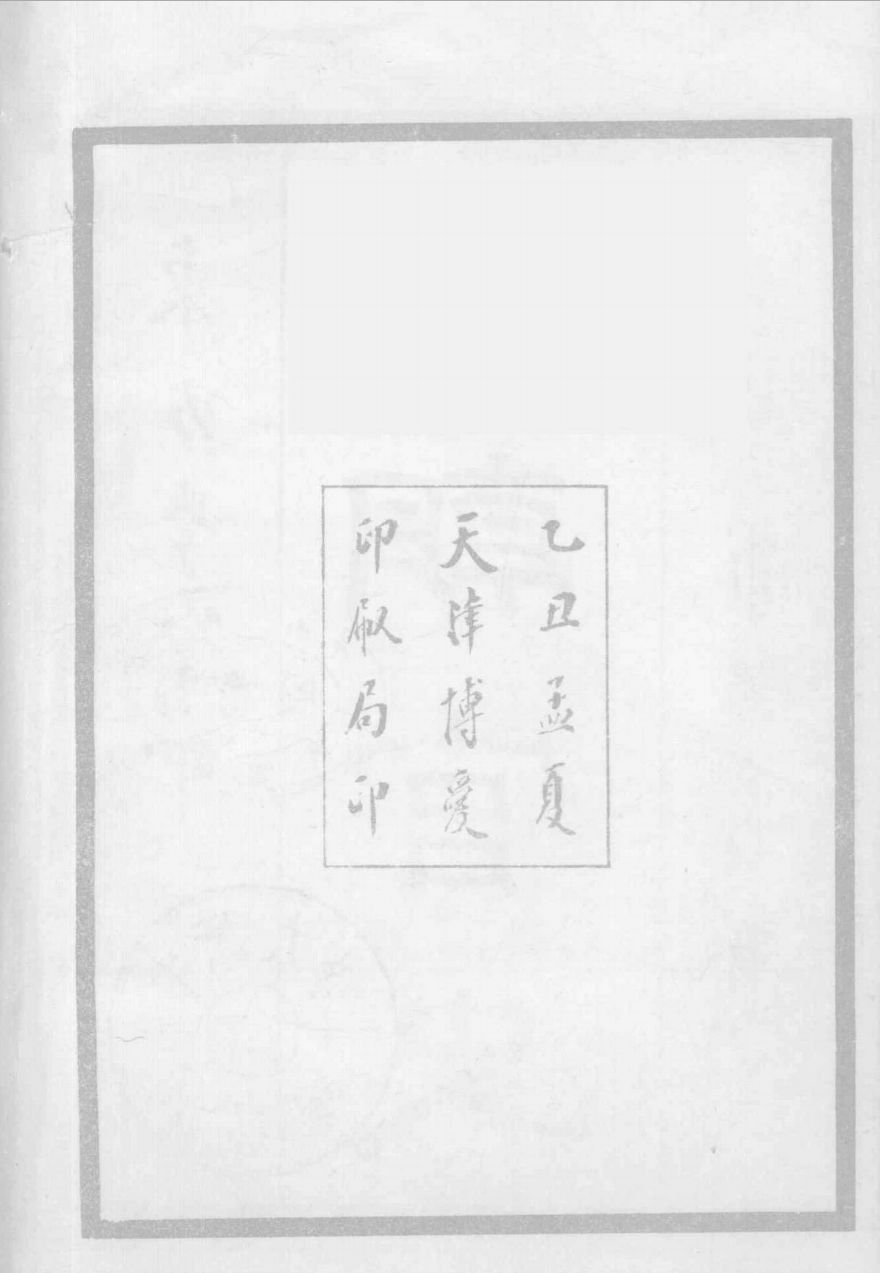 乙丑孟夏
天津博愛
印刷局印